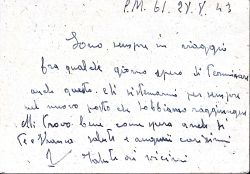 P.M. 61. 28. X. 43
Sono sempre in viaggio
fra qualche giorno spero di terminare
anche questo e di sistemarmi per sempre
nel nuovo posto che dobbiamo raggiungere
Mi trovo bene come spero anche di
te e saluti e auguri carissimi
saluta i vicini